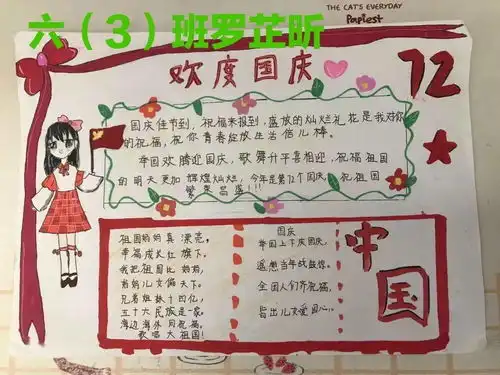 THE CAT'S EVERYDAY
Papiest
六（3）班罗芷昕
欢度国庆
72
国庆佳节到，祝福来报到，盛放的灿烂礼花是我对你
的祝福，祝你青春绽放生活倍儿棒。
举国欢腾迎国庆，歌舞升平喜相迎，祝福祖国
的明天更加辉煌灿烂，今年是第72个国庆，祝祖国
繁荣昌盛！！！
祖国妈妈真漂亮，
幸福成长红旗下。
我把祖国比妈妈，
育妈儿女偏天下。
兄弟姐妹十四亿，
五十六民族是一家。
海边海外同祝福，
歌唱大祖国！
国庆
举国上下庆国庆，
遥想当年战鼓惊。
全国人们齐祝福，
皆出儿女爱国心。
中国